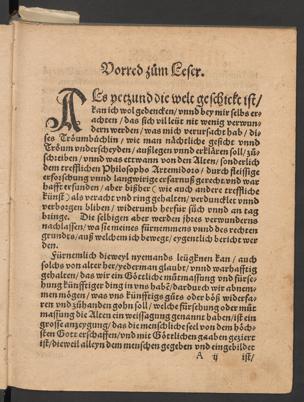 Vorred zům Leser.
ALs yetzund die welt geschickt ist/
kan ich wol gedencken/ vnnd bey mir selbs er-
achten/ das sich vil leüt nit wenig verwun-
dern werden/ was mich verursacht hab/ di-
ses Tröumbüchlin/ wie man nächtliche gesicht vnnd
Tröum vnderscheyden/ außlegen vnnd erklären soll/ zů-
schreiben/ vnnd was ettwann von den Alten/ sonderlich
dem trefflichen Philosopho Artemidoro/ durch fleissige
erforschung vnnd langwirige erfarnuß gerecht vnd war
hafft erfunden/ aber bißher (wie auch andere treffliche
künst) als veracht vnd ring gehalten/ verduncklet vnnd
verborgen bliben/ widerumb herfür sůch vnnd an tag
bringe. Die selbigen aber werden ihres verwunderns
nachlassen/ wa sie meines fürnemmens vnnd des rechten
grundts/ auß welchem ich bewege/ eygentlich bericht wer
den.
Fürnemlich dieweyl nyemands leügknen kan/ auch
solchs von alter her/ yederman glaubt/ vnnd warhafftig
gehalten/ das wir ein Göttliche můtmassung vnd fürse-
hung künfftiger ding in vns habē/ dardurch wir abnem-
men mögen/ was vns künfftigs gůts oder böß widerfa-
ren vnd zůhanden gohn soll/ welche fürsehung oder můt
massung die Alten ein weissagung genannt haben/ ist ein
grosse anzeygung/ das die menschliche seel von dem höch-
sten Gott erschaffen/ vnd mit Göttlichen gaaben geziert
ist/ dieweil alleyn dem menschen gegeben vnd eingebildet
A ij ist/